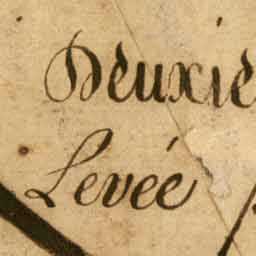 Deuxie
Levée